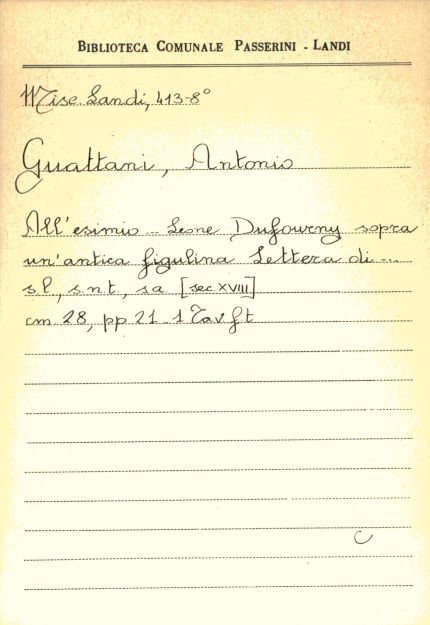 BIBLIOTECA COMUNALE PASSERINI - LANDI
Misc. Landi, 413-8°
Guattani, Antonio
All'esimio .. Leone Dufourny sopra
un'antica figulina Lettera di ...
s.l., s.n.t., s.a. [sec. XVIII]
cm 28, pp 21 - 1 Tav f.t
C